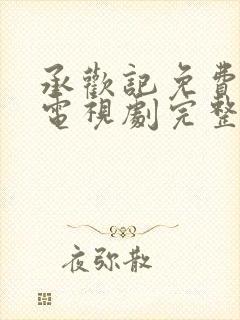 承歡記免費
電視劇完整
夜弥散